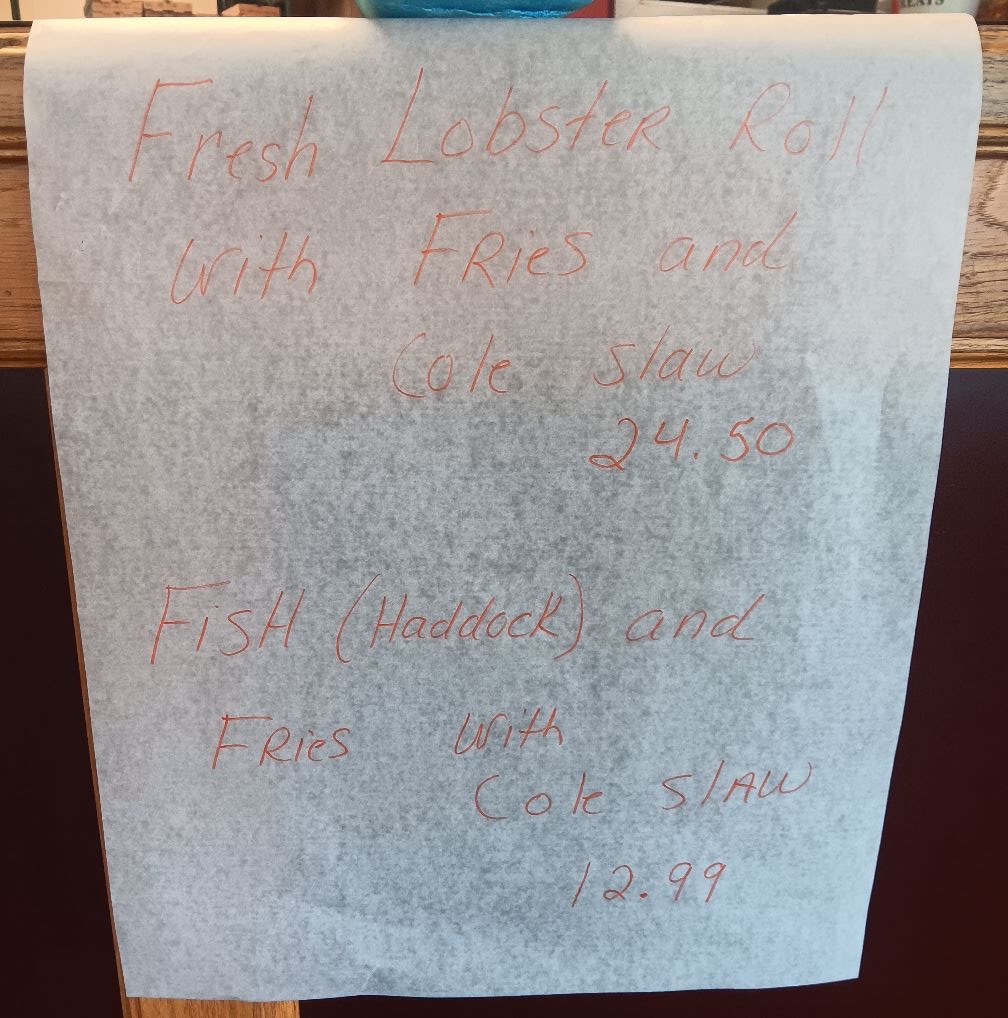 Fresh Lobster Roll
with Fries and
Cole slaw
24.50
Fish (Haddock) and
Fries with
Cole slaw
12.99